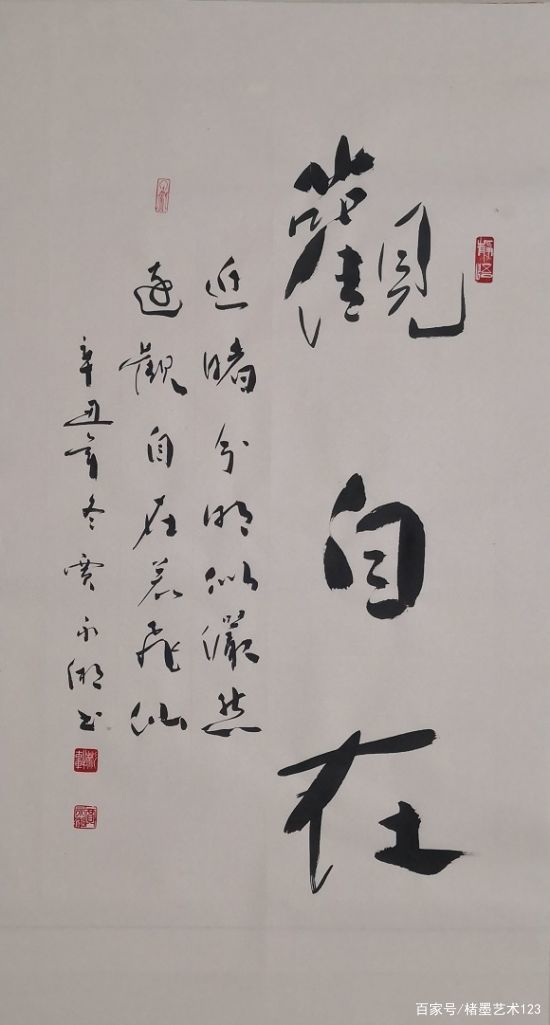 觀自在
近睹分明似儼然
遠觀自在若飛仙
辛丑年冬賈永湘书
百家号/楮墨艺术123